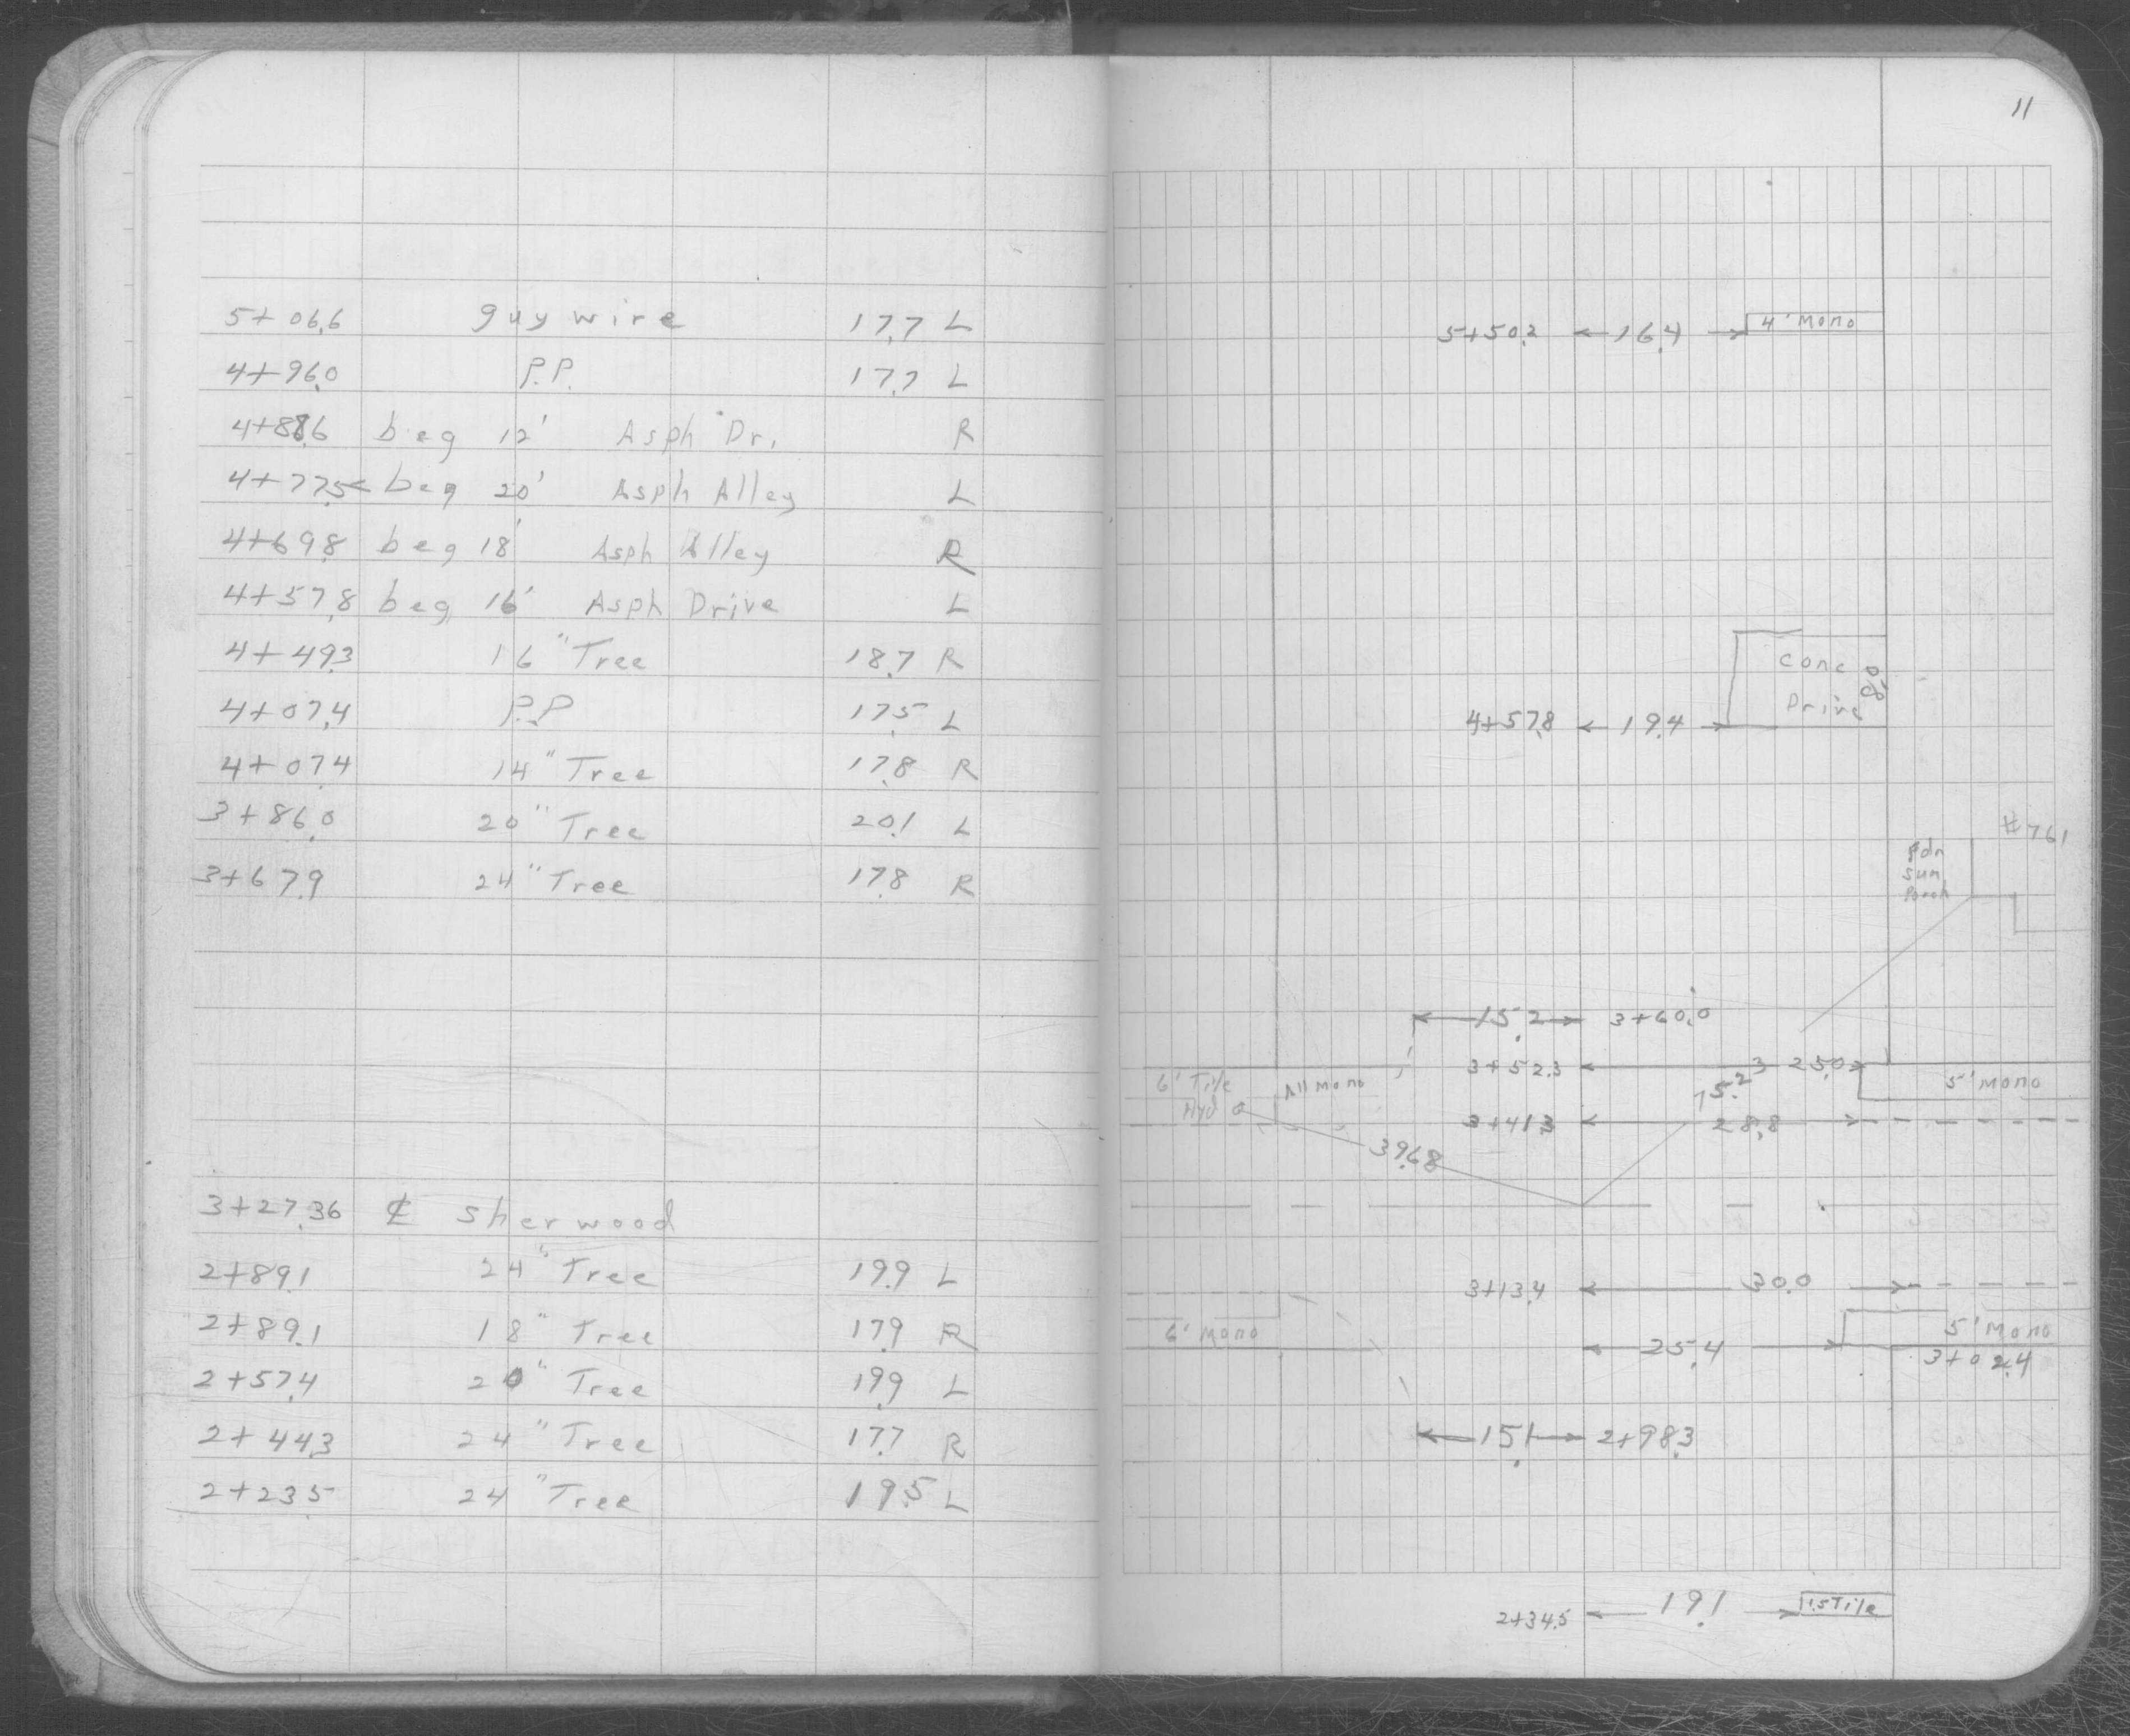 11
5+06.6 guy wire 17.7 L
4+96.0 P.P. 17.7 L
4+88.6 beg 12' Asph Dr. R
4+77.5 beg 20' Asph Alley L
4+69.8 beg 18' Asph Alley R
4+57.8 beg 16' Asph Drive L
4+49.3 16" Tree 18.7 R
4+07.4 P.P 17.5 L
4+07.4 14" Tree 17.8 R
3+86.0 20" Tree 20.1 L
3+67.9 24" Tree 17.8 R
3+27.36 ℄ Sherwood
2+89.1 24" Tree 19.9 L
2+89.1 18" Tree 17.9 R
2+57.4 20" Tree 19.9 L
2+44.3 24" Tree 17.7 R
2+23.5 24" Tree 19.5 L
5+50.2 16.4 4' Mono
Conc
Drive
4+57.8 19.4
#761
Fdn
Sun
Porch
15.2 3+60.0
3+52.3 25.0
6' Tile All Mono 5' Mono
Hyd
75.23
3+41.3 28.8
39.68
3+13.4 30.0
6' Mono 5' Mono
25.4 3+02.4
15.1 2+98.3
2+34.5 19.1 1.5 Tile